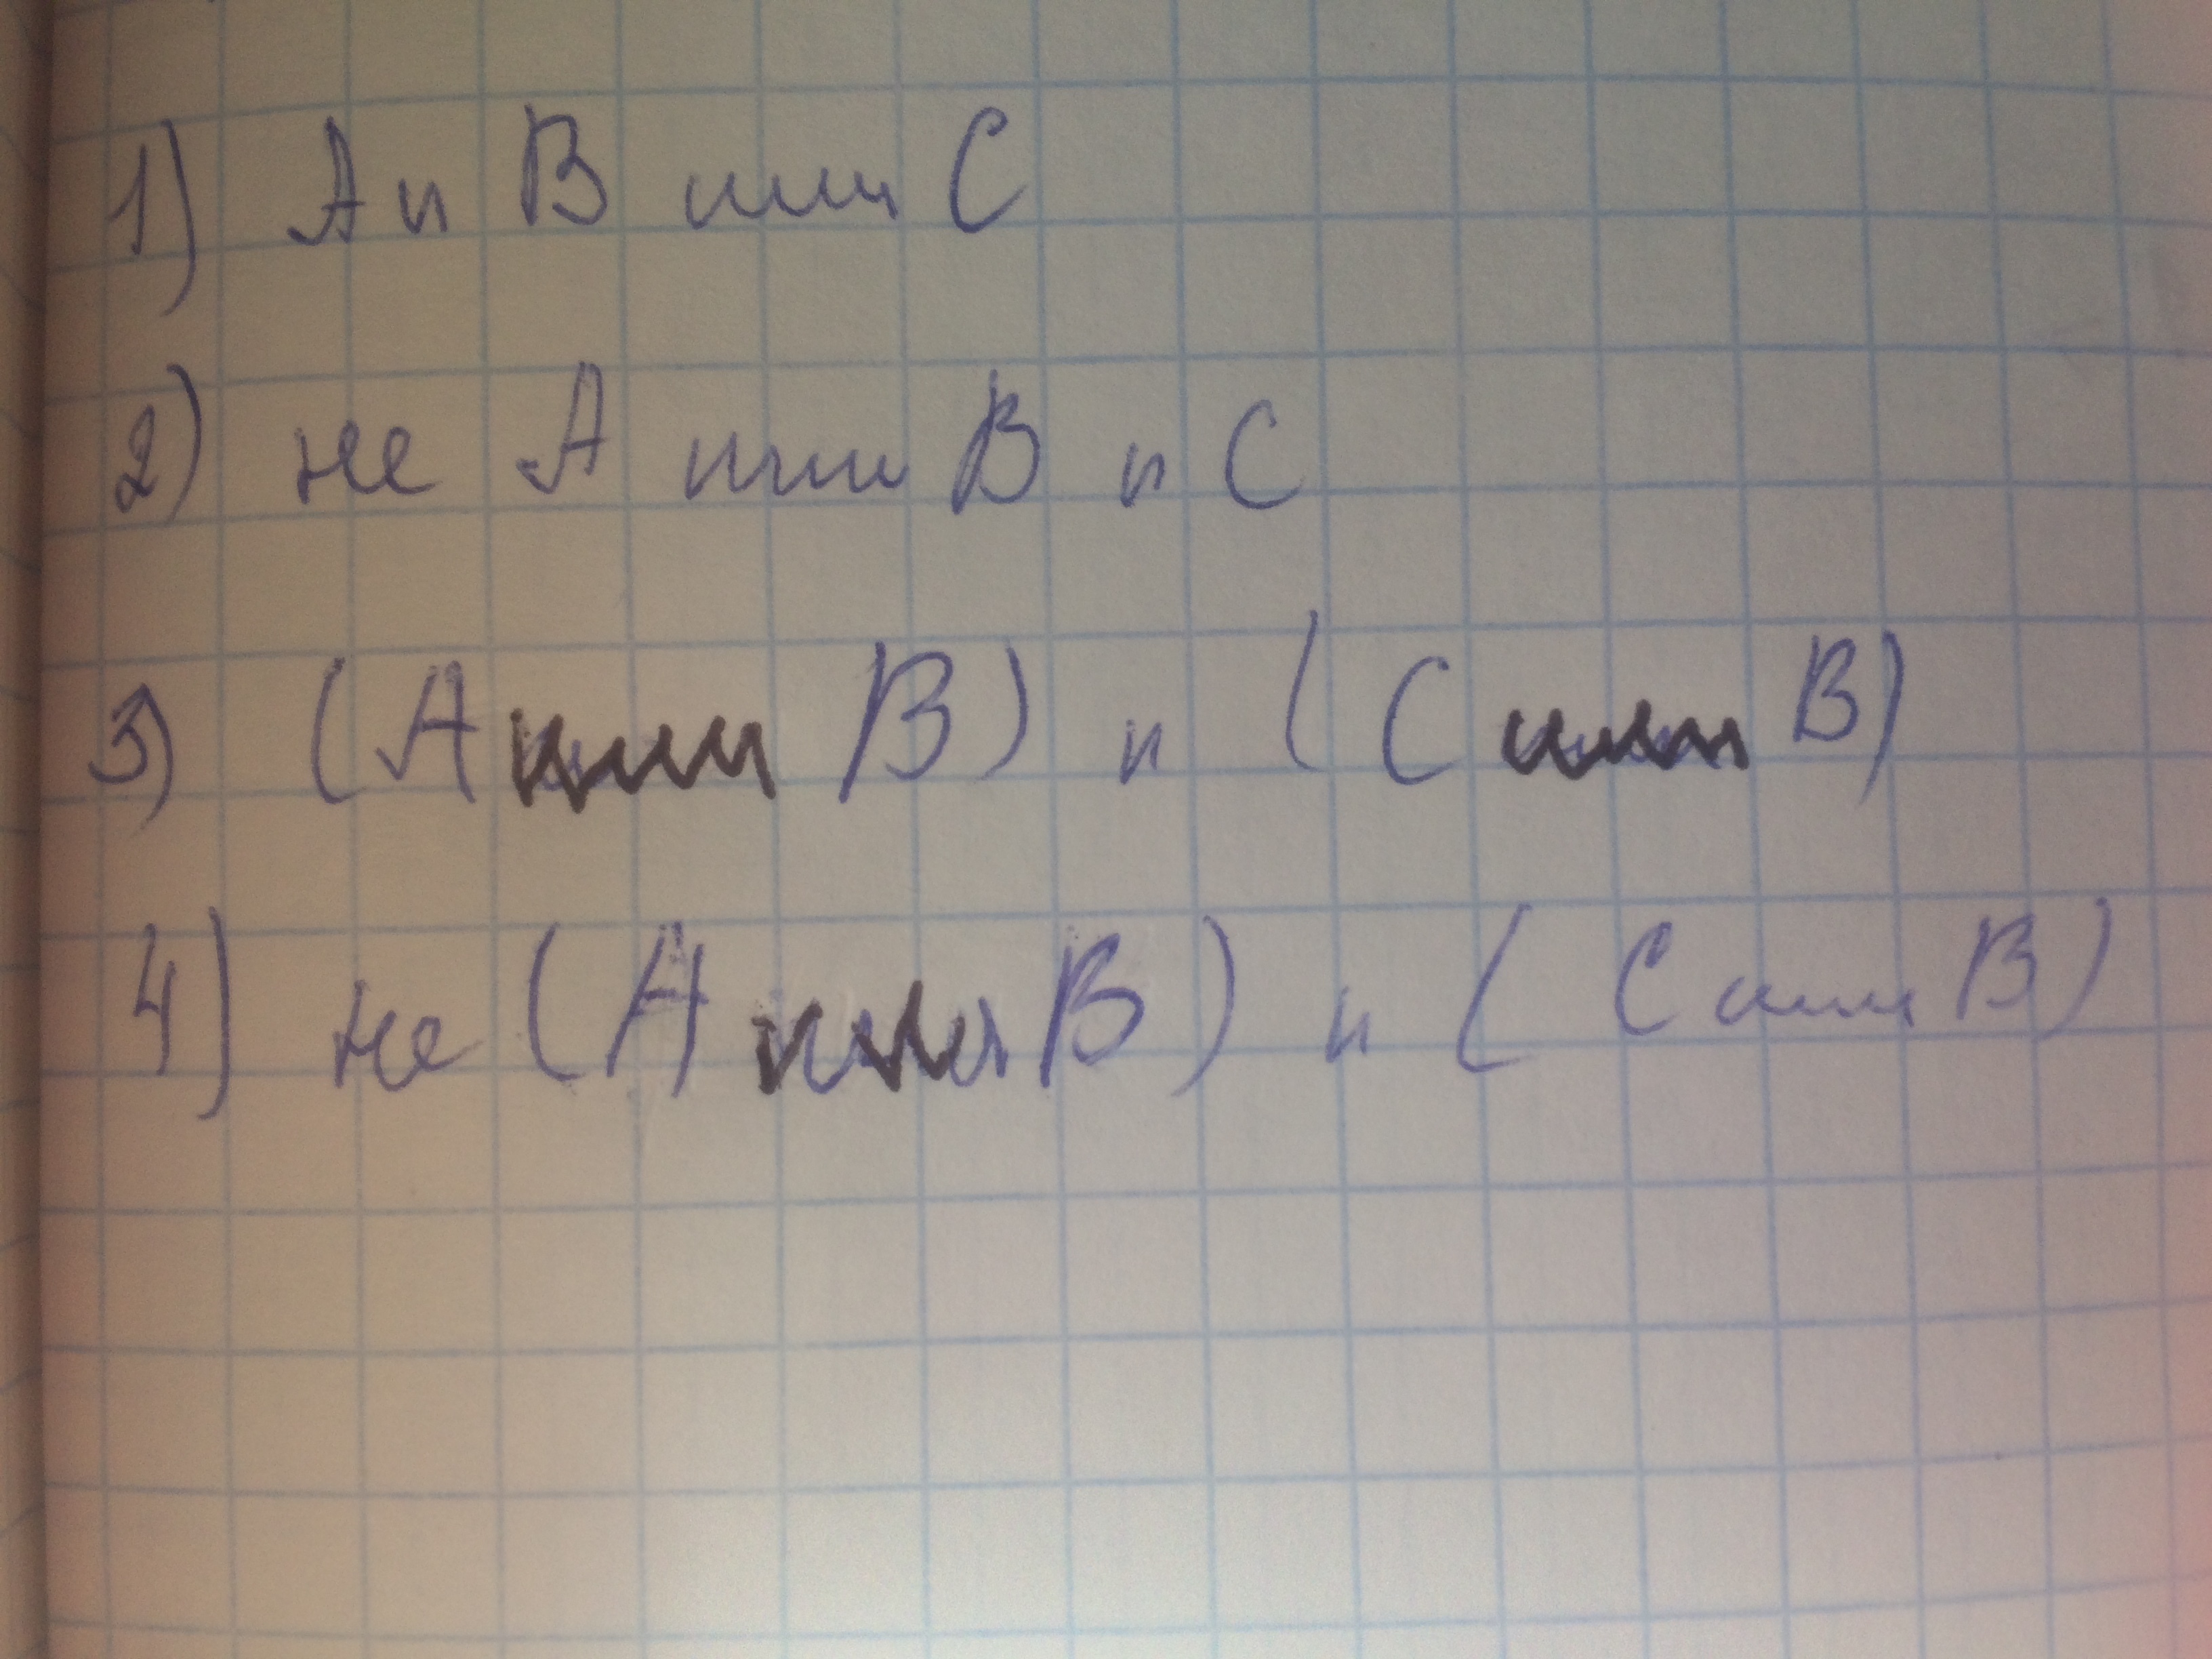 1) А и В или С
2) не А или В и С
3) (А или В) и (С или В)
4) не (А или В) и (С или В)